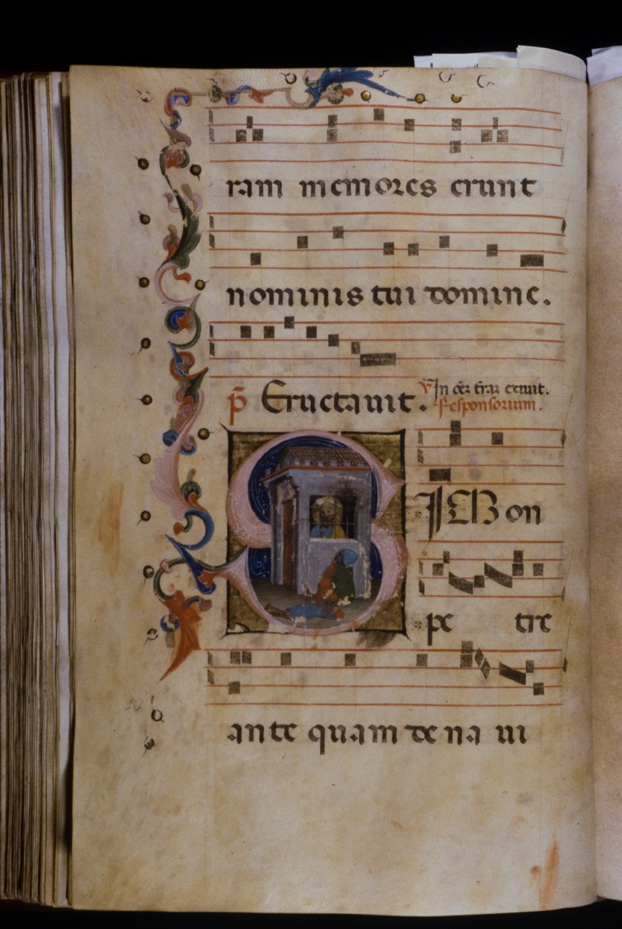 ram memores erunt
nominis tui domine.
p̄s Eructauit. ℣ In oēz t̄raz exiuit.
Responsorium.
SIMon
pe tre
ante quam de na ui